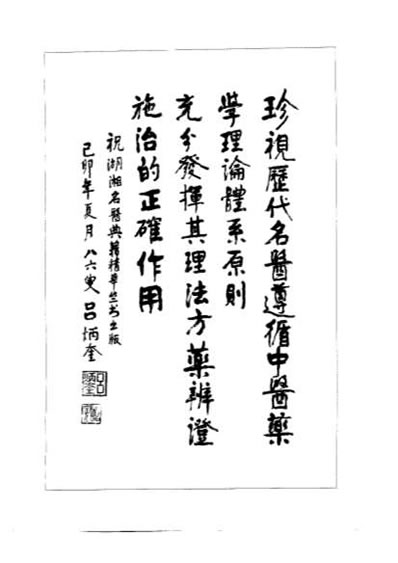 珍視歷代名醫遵循中醫藥
學理論體系原則
充分發揮其理法方藥辨證
施治的正確作用
祝湖湘名醫典籍精華丛书出版
己卯年夏月八六叟呂炳奎